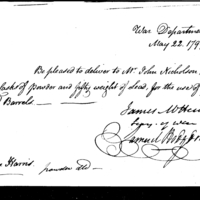 War Departme
May 22. 179
Be pleased to deliver to Mr. John Nicholson
Casks of powder and fifty weight of lead, for the use of
Barrels
James McHen
Secy. of War
Samuel
Harris
powder &c